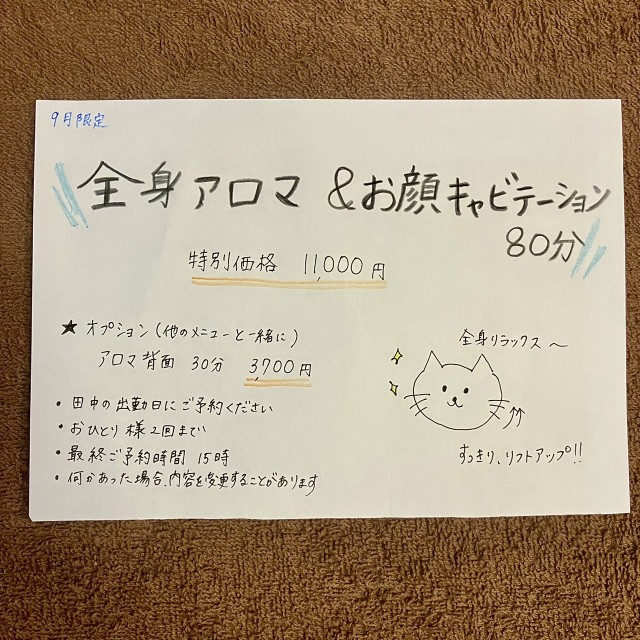 9月限定
全身アロマ &お顔キャビテーション
80分
特別価格 11,000円
★ オプション(他のメニューと一緒に)
アロマ背面 30分 3,700円
・田中の出勤日にご予約ください
・おひとり様2回まで
・最終ご予約時間 15時
・何かあった場合、内容を変更することがあります
全身リラックス〜
すっきり、リフトアップ!!